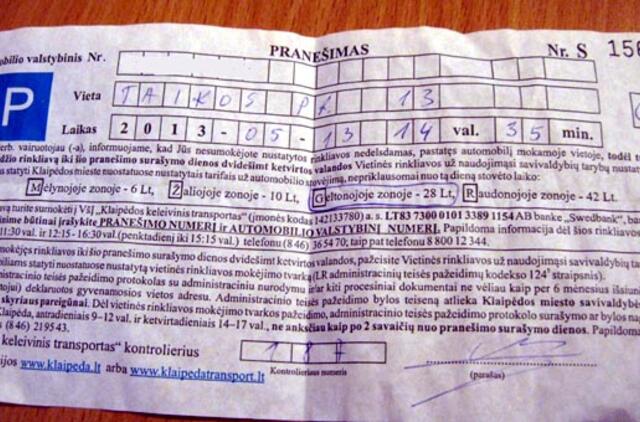 PRANEŠIMAS Nr. S 156
obilio valstybinis Nr.
P
Vieta TAIKOS PR. 13
Laikas 2013-05-13 14 val. 35 min.
erb. vairuotojau (-a), informuojame, kad Jūs nesumokėjote nustatytos rinkliavos nedelsdamas, pastatęs automobilį mokamoje vietoje, todėl
džio rinkliavą iki šio pranešimo surašymo dienos dvidešimt ketvirtos valandos Vietinės rinkliavos už naudojimąsi savivaldybių tarybų nustat
s statyti Klaipėdos mieste nuostatuose nustatytais tarifais už automobilio stovėjimą, nepriklausomai nuo tą dieną stovėto laiko:
Mėlynojoje zonoje - 6 Lt, Žaliojoje zonoje - 10 Lt, Geltonojoje zonoje - 28 Lt, Raudonojoje zonoje - 42 Lt.
avą turite sumokėti į VšĮ „Klaipėdos keleivinis transportas“ (įmonės kodas 142133780) a. s. LT83 7300 0101 3389 1154 AB banke „Swedbank“,
sime būtinai įrašykite PRANEŠIMO NUMERĮ ir AUTOMOBILIO VALSTYBINĮ NUMERĮ. Papildoma informacija dėl šios rinkliavos
11:30 val. ir 12:15 - 16:30 val. (penktadienį iki 15:15 val.) telefonu (8 46) 36 54 70; taip pat telefonu 8 800 12 344.
mokėjęs rinkliavos iki šio pranešimo surašymo dienos dvidešimt ketvirtos valandos, pažeisite Vietinės rinkliavos už naudojimąsi savivaldybių
biliams statyti nuostatuose nustatytą vietinės rinkliavos mokėjimo tvarką (LR administracinių teisės pažeidimų kodekso 124⁷ straipsnis).
inistracinio teisės pažeidimo protokolas su administraciniu nurodymu ir/ar kiti procesiniai dokumentai ne vėliau kaip per 6 mėnesius
tojui) deklaruotos gyvenamosios vietos adresu. Administracinio teisės pažeidimo bylos teiseną atlieka Klaipėdos miesto savivaldyb
skyriaus pareigūnai. Dėl vietinės rinkliavos mokėjimo tvarkos pažeidimo, administracinio teisės pažeidimo protokolo surašymo ar bylos
Klaipėda, antradieniais 9–12 val. ir ketvirtadieniais 14–17 val., ne anksčiau kaip po 2 savaičių nuo pranešimo surašymo dienos. Papildoma
(8 46) 219543.
keleivinis transportas“ kontrolierius 187
ijos www.klaipeda.lt arba www.klaipedatransport.lt
Kontrolieriaus numeris (parašas)